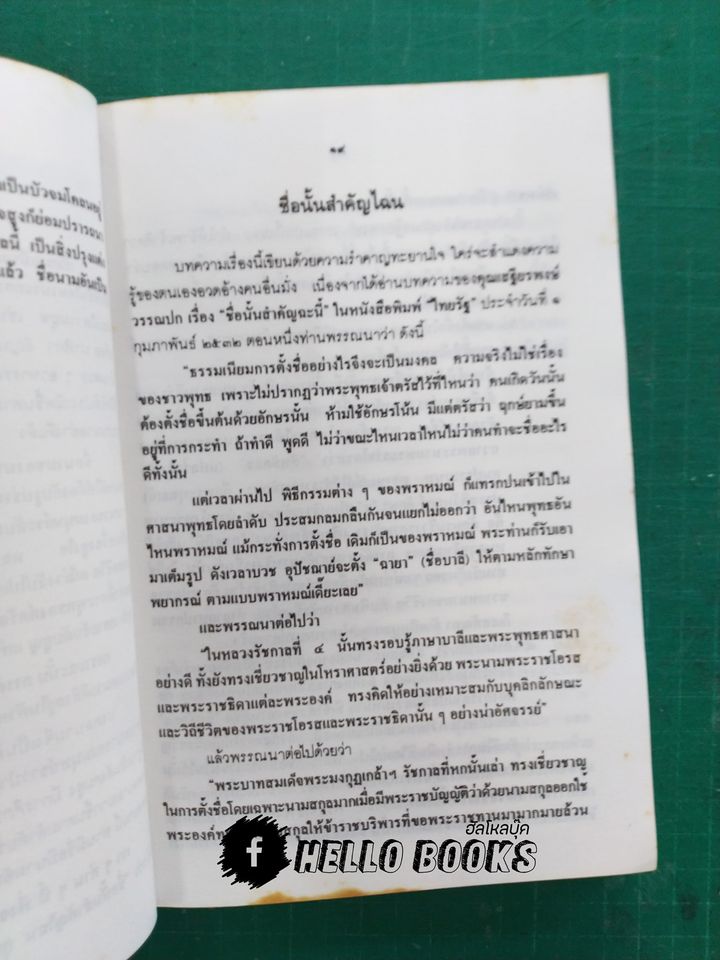 เป็นบัวจมโคลนอยู่
สูงก็ย่อมปรารถนา
เป็นสิ่งปรุงแต่ง
แล้ว ชื่อนามอันเป็น
๑๙
ชื่อนั้นสำคัญไฉน
บทความเรื่องนี้เขียนด้วยความรำคาญทะยานใจ ใคร่จะสำแดงความ
รู้ของตนเองอวดอ้างคนอื่นมั่ง เนื่องจากได้อ่านบทความของคุณเสฐียรพงษ์
วรรณปก เรื่อง “ชื่อนั้นสำคัญฉะนี้” ในหนังสือพิมพ์ “ไทยรัฐ” ประจำวันที่ ๑
กุมภาพันธ์ ๒๕๓๒ ตอนหนึ่งท่านพรรณนาว่า ดังนี้
“ธรรมเนียมการตั้งชื่ออย่างไรจึงจะเป็นมงคล ความจริงไม่ใช่เรื่อง
ของชาวพุทธ เพราะไม่ปรากฏว่าพระพุทธเจ้าตรัสไว้ที่ไหนว่า คนเกิดวันนั้น
ต้องตั้งชื่อขึ้นต้นด้วยอักษรนั้น ห้ามใช้อักษรโน้น มีแต่ตรัสว่า ฤกษ์ยามขึ้น
อยู่ที่การกระทำ ถ้าทำดี พูดดี ไม่ว่าขณะไหนเวลาไหนไม่ว่าคนทำจะชื่ออะไร
ดีทั้งนั้น
แต่เวลาผ่านไป พิธีกรรมต่าง ๆ ของพราหมณ์ ก็แทรกปนเข้าไปใน
ศาสนาพุทธโดยลำดับ ประสมกลมกลืนกันจนแยกไม่ออกว่า อันไหนพุทธอัน
ไหนพราหมณ์ แม้กระทั่งการตั้งชื่อ เดิมก็เป็นของพราหมณ์ พระท่านก็รับเอา
มาเต็มรูป ดังเวลาบวช อุปัชฌาย์จะตั้ง “ฉายา” (ชื่อบาลี) ให้ตามหลักทักษา
พยากรณ์ ตามแบบพราหมณ์เดี๊ยะเลย”
และพรรณนาต่อไปว่า
“ในหลวงรัชกาลที่ ๔ นั้นทรงรอบรู้ภาษาบาลีและพระพุทธศาสนา
อย่างดี ทั้งยังทรงเชี่ยวชาญในโหราศาสตร์อย่างยิ่งด้วย พระนามพระราชโอรส
และพระราชธิดาแต่ละพระองค์ ทรงคิดให้อย่างเหมาะสมกับบุคลิกลักษณะ
และวิถีชีวิตของพระราชโอรสและพระราชธิดานั้น ๆ อย่างน่าอัศจรรย์”
แล้วพรรณนาต่อไปด้วยว่า
“พระบาทสมเด็จพระมงกุฎเกล้าฯ รัชกาลที่หกนั้นเล่า ทรงเชี่ยวชาญ
ในการตั้งชื่อโดยเฉพาะนามสกุลมากเมื่อมีพระราชบัญญัติว่าด้วยนามสกุลออกใช้
พระองค์ สกุลให้ข้าราชบริพารที่ขอพระราชทานมามากมายล้วน
ฮัลโหลบุ๊ค
f HELLO BOOKS